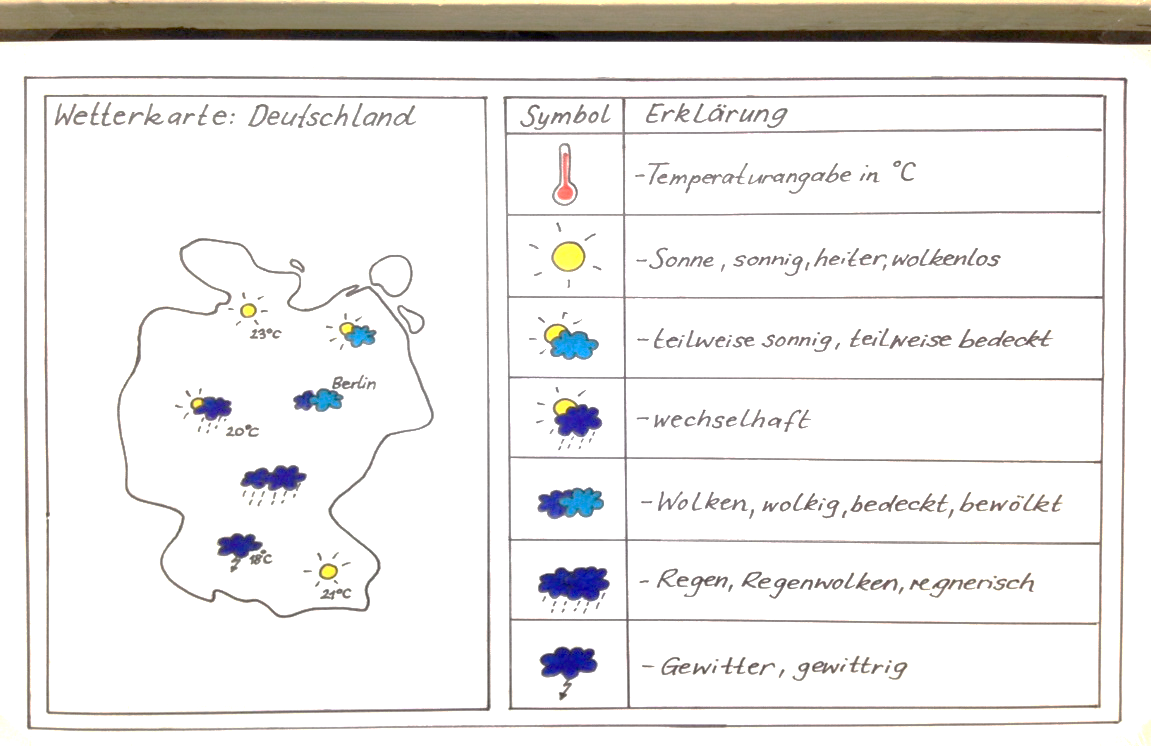 Wetterkarte: Deutschland
23°C
Berlin
20°C
18°C
21°C
Symbol Erklärung
-Temperaturangabe in °C
-Sonne, sonnig, heiter, wolkenlos
-teilweise sonnig, teilweise bedeckt
-wechselhaft
-Wolken, wolkig, bedeckt, bewölkt
-Regen, Regenwolken, regnerisch
-Gewitter, gewittrig